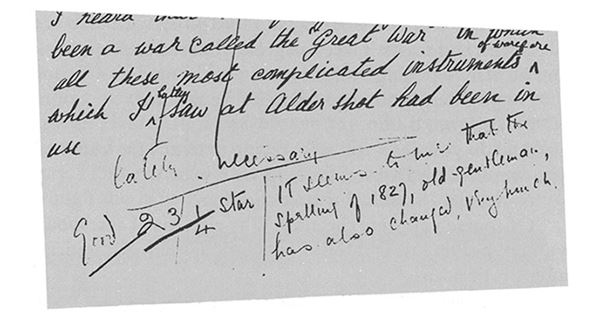 I heard that
been a war called the "Great War" in which
all these most complicated instruments ^ of warfare
which I ^ lately saw at Aldershot had been in
use
lately. necessary
Good 23 1/4 star
It seems to me that the
spelling of 1827, old gentleman,
has also changed, very much.